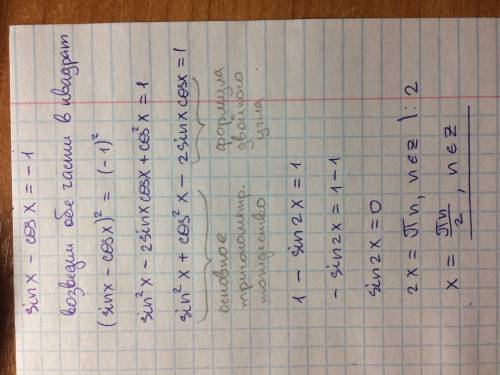 sin x - cos x = -1
возведем обе части в квадрат
(sin x - cos x)² = (-1)²
sin² x - 2 sin x cos x + cos² x = 1
sin² x + cos² x - 2 sin x cos x = 1
основное формула
тригонометр. двойного
тождество угла
1 - sin 2x = 1
- sin 2x = 1 - 1
sin 2x = 0
2x = πn, n∈z | : 2
x = πn/2, n∈z